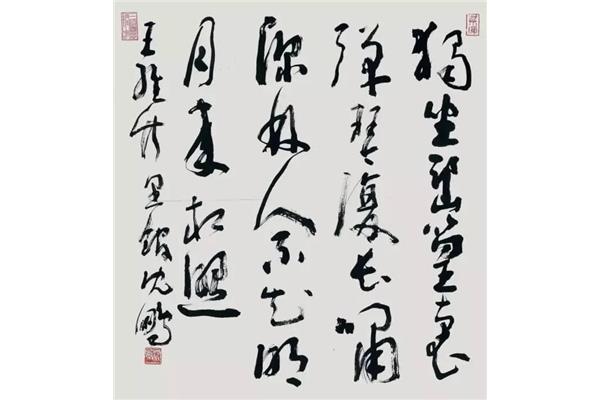 獨坐幽篁裏
彈琴復長嘯
深林人不知明
月來相照
王維竹里館沈鵬